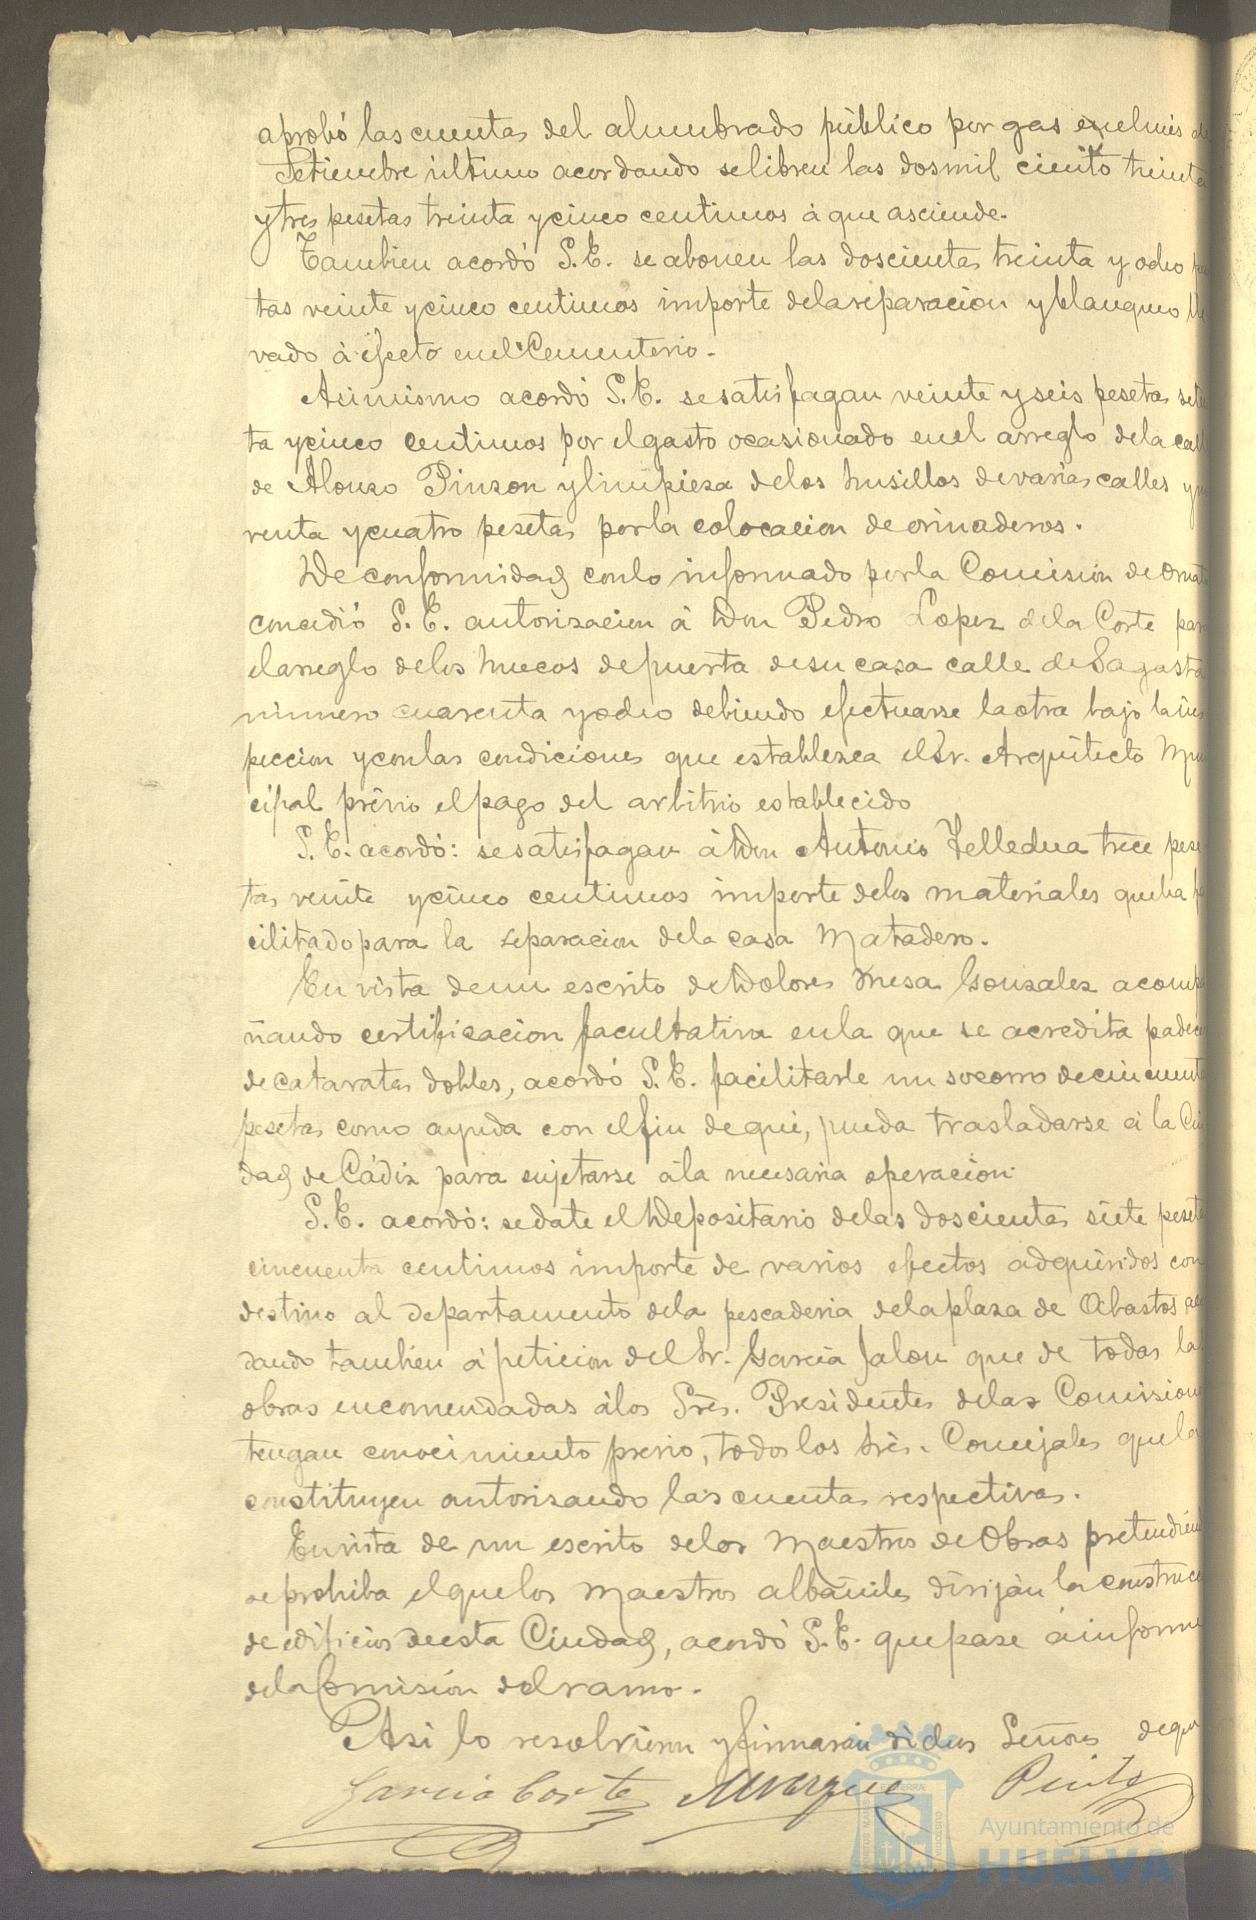 aprobó las cuentas del alumbrado público por gas en el mes de
Setiembre último acordando se libren las dosmil ciento treinta
y tres pesetas treinta y cinco centimos á que asciende.
Tambien acordó S.E. se abonen las doscientas treinta y ocho
tas veinte y cinco centimos importe de la reparacion y blanqueo lle
vado á efecto en el Cementerio.
Asimismo acordó S.E. se satisfagan veinte y seis pesetas seten
ta y cinco centimos por el gasto ocasionado en el arreglo de la calle
de Alonso Pinzon y limpieza de los husillos de varias calles y
venta y cuatro pesetas por la colocacion de orinaderos.
De conformidad con lo informado por la Comisión de Ornato
concedió S.E. autorizacion á Don Pedro Lopez de la Corte para
el arreglo de los huecos de puerta de su casa calle de Sagasta
número cuarenta y ocho debiendo efectuarse la otra bajo la ins
peccion y con las condiciones que establezca el Sr. Arquitecto Muni
cipal prévio el pago del arbitrio establecido
S.E. acordó: se satisfagan á Don Antonio trece pese
tas veinte y cinco centimos importe de los materiales que ha fa
cilitado para la reparacion de la casa Matadero.
En vista de un escrito de Dolores Mesa Gonzalez acompa
ñando certificacion facultativa en la que se acredita padecer
de cataratas dobles, acordó S.E. facilitarle un socorro de cincuenta
pesetas como ayuda con el fin de que, pueda trasladarse á la Ciu
dad de Cádiz para sujetarse á la necesaria operacion.
S.E. acordó: se date el Depositario de las doscientas siete pesetas
cincuenta centimos importe de varios efectos adquiridos con
destino al departamento de la pescaderia de la plaza de Abastos acor
dando tambien á peticion del Sr. Garcia Jalon que de todas las
obras encomendadas á los Sres. Presidentes de las Comisiones
tengan conocimiento previo, todos los Sres. Concejales que la
constituyen autorizando las cuentas respectivas.
En vista de un escrito de los Maestros de Obras pretendiendo
se prohiba el que los Maestros albañiles dirijan la construccion
de edificios de esta Ciudad, acordó S.E. que pase á informe
de la Comisión del ramo.
Asi lo resolvieron y firmarán dichos Señores de que
Garcia Corte Marquez Pinto
Ayuntamiento de
HUELVA